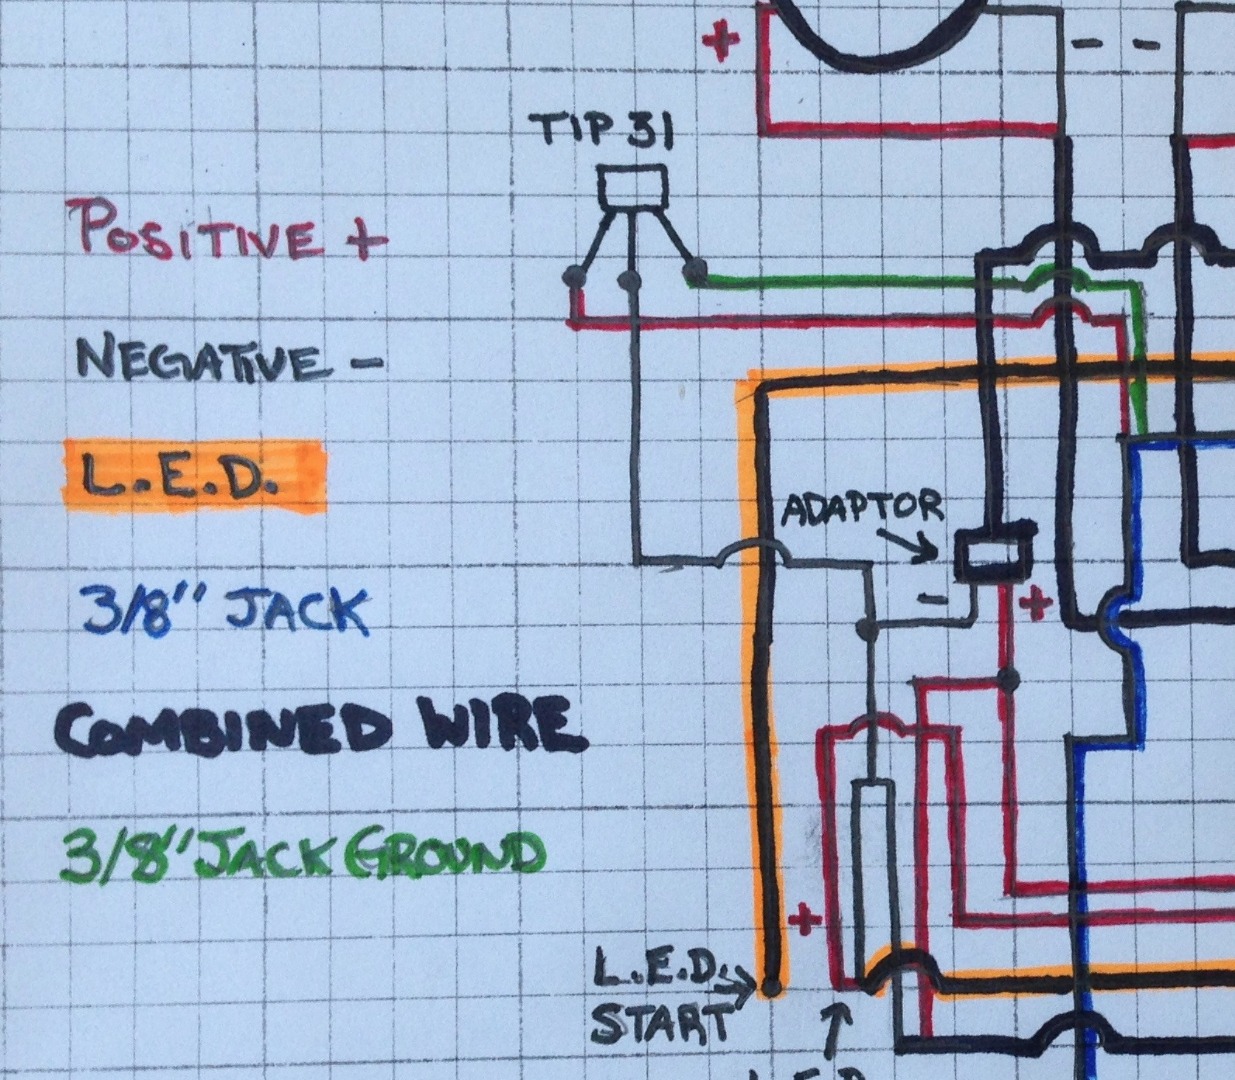 +
- -
TIP 31
POSITIVE +
NEGATIVE -
L.E.D.
ADAPTOR
3/8" JACK
- +
COMBINED WIRE
3/8" JACK GROUND
+
L.E.D.
START
L.E.D.